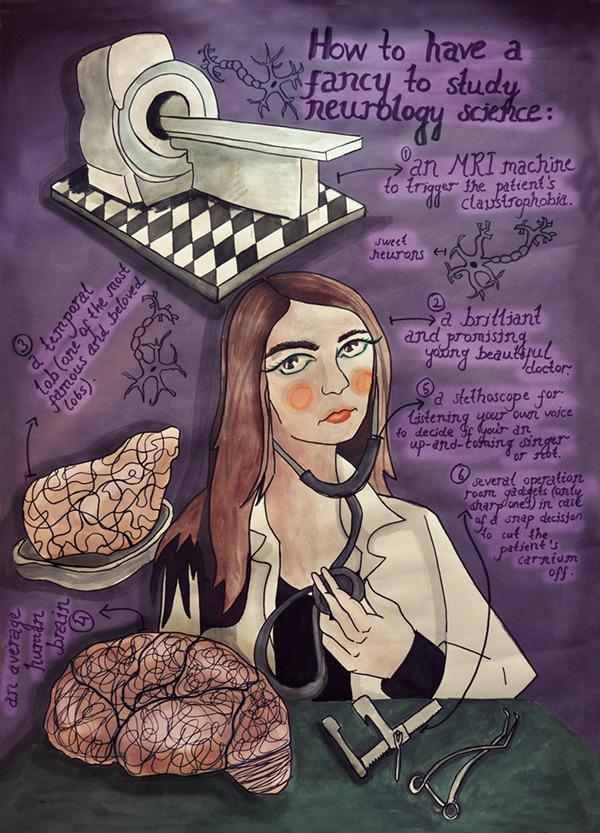 How to have a
fancy to study
neurology science:
① an MRI machine
to trigger the patient's
claustrophobia.
sweet
neurons
② a brilliant
and promising
young beautiful
doctor.
③ a temporal
lob (one of the most
famous and beloved
lobs).
⑤ a stethoscope for
listening your own voice
to decide if your an
up-and-coming singer
or not.
⑥ several operation
room gadgets (only
sharp ones) in case
of a snap decision
to cut the
patient's
carnium
off.
④ an average
human
brain